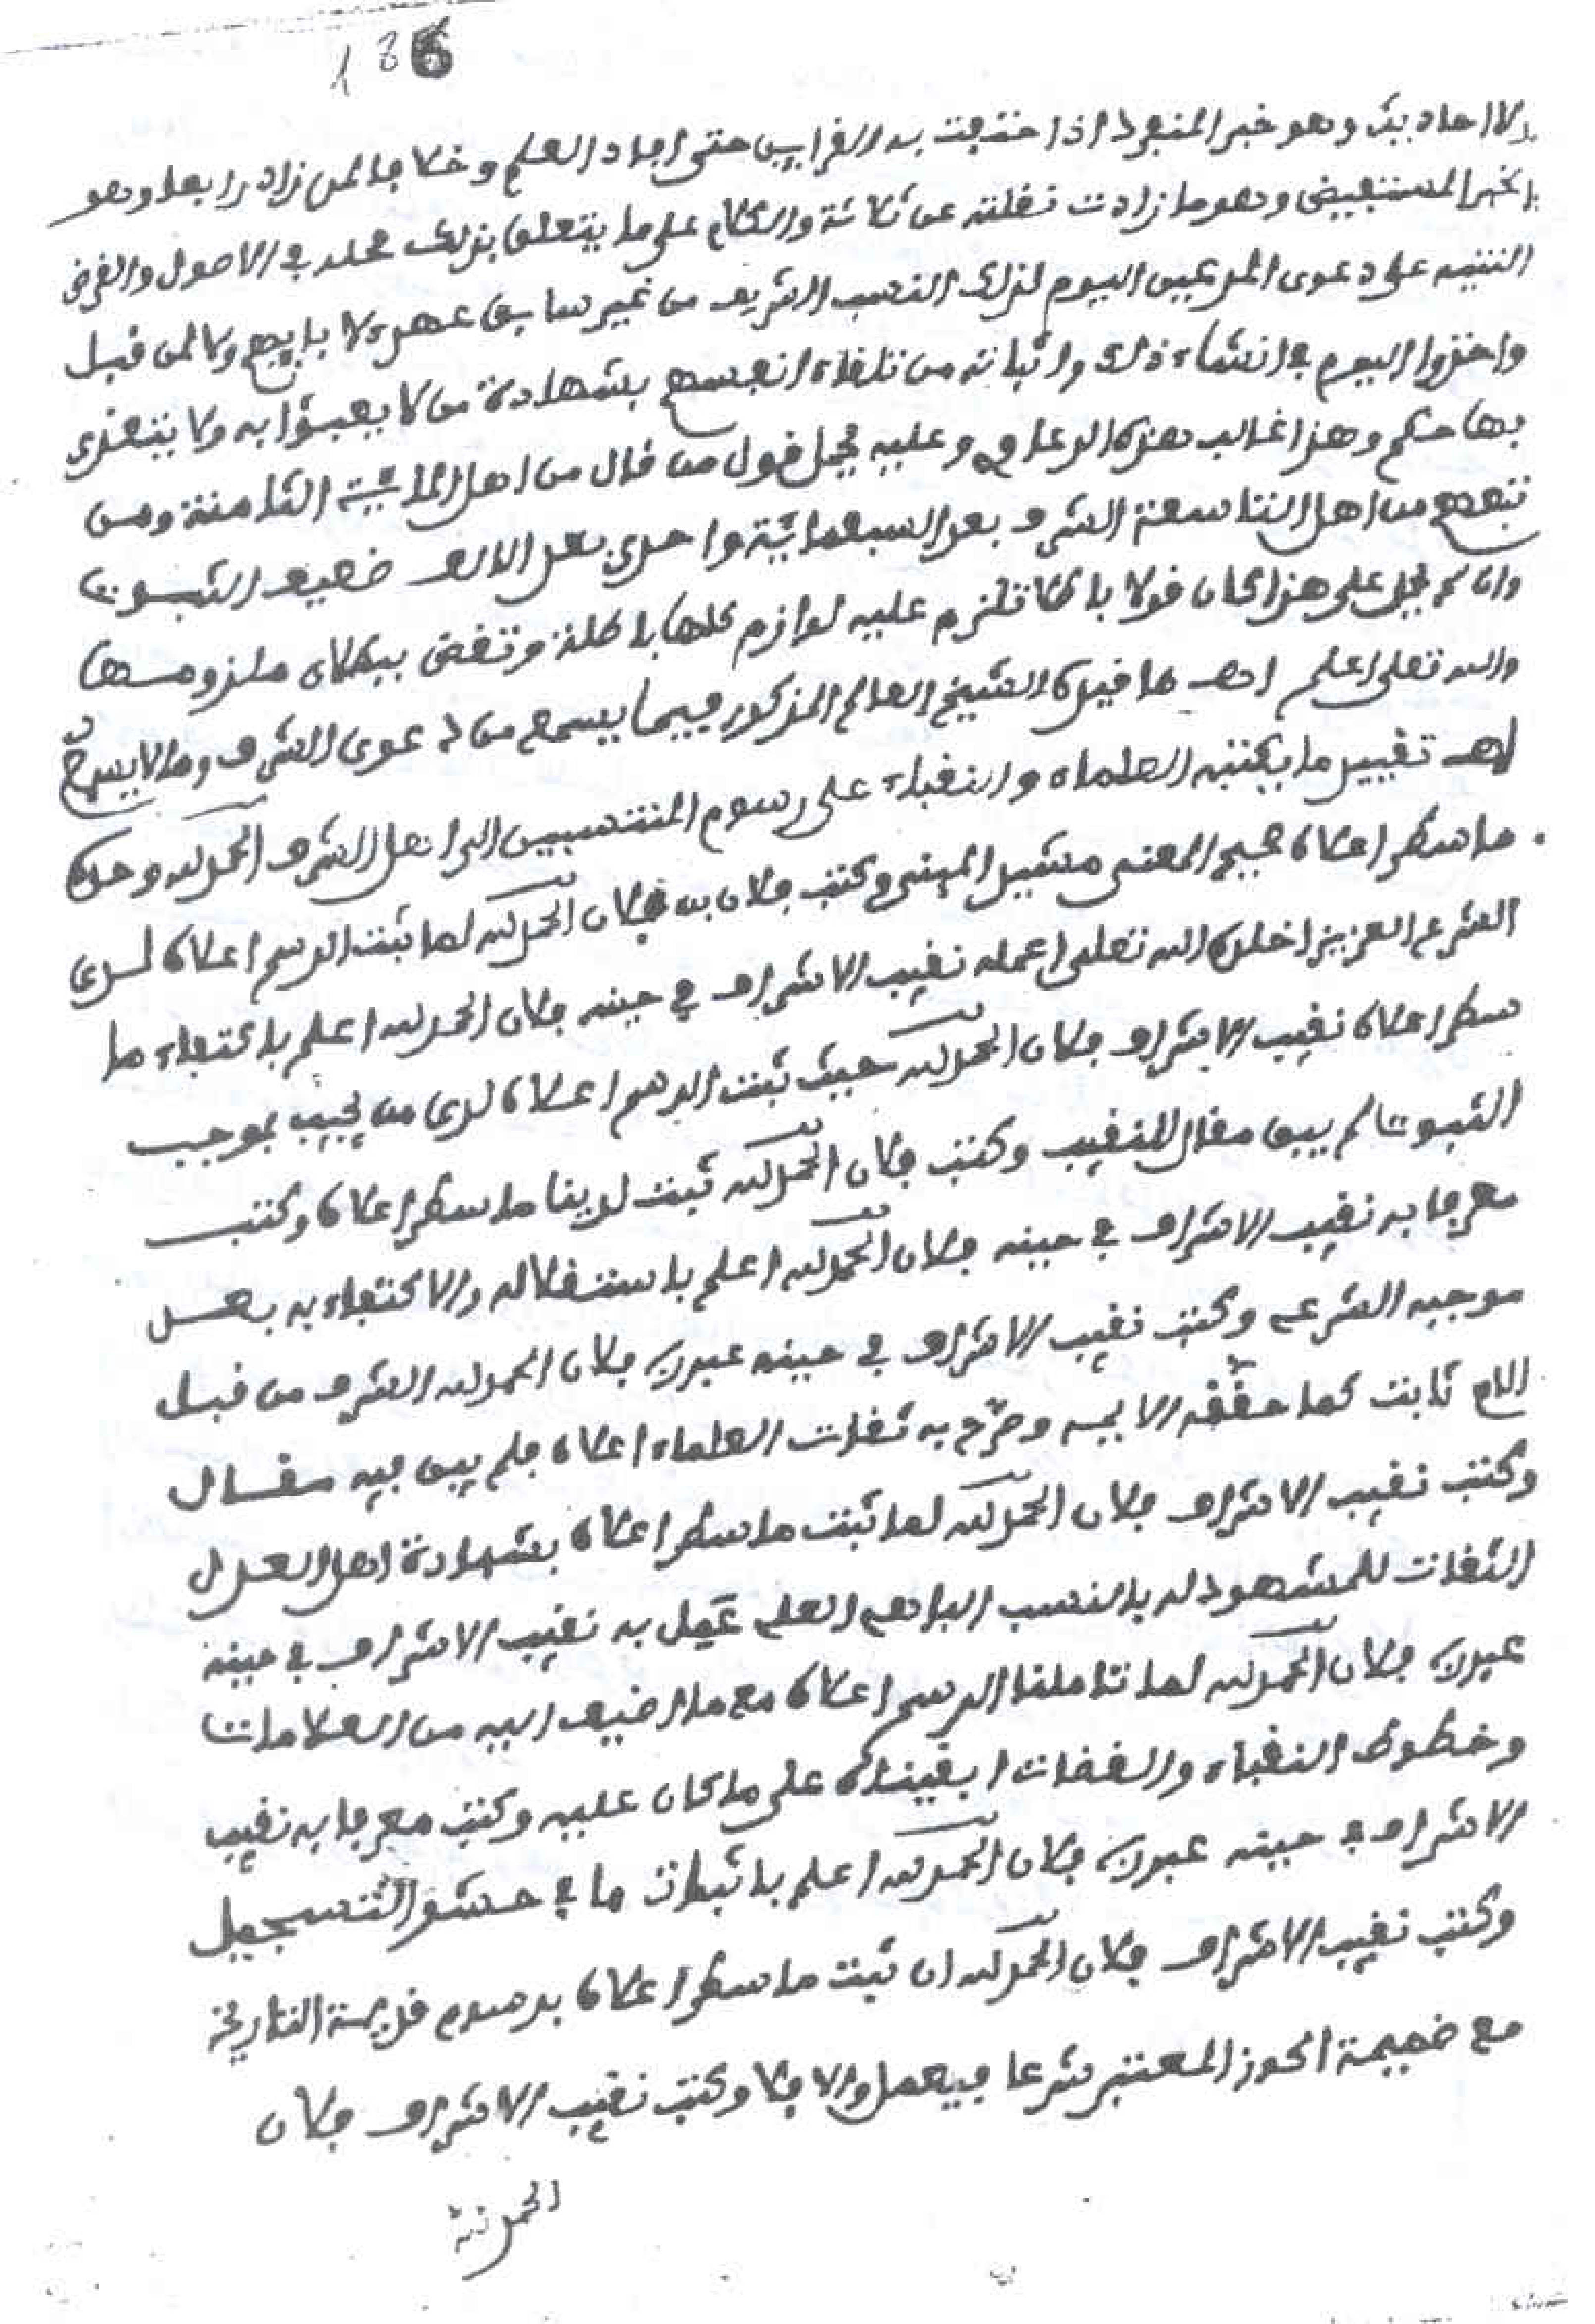 186
الاحاديث وهو خبر المنفرد اذا احتفت به القرايين حتى افاد العلم وخلافا لمن زاد رابعا وهو
الخبر المستفيض وهو ما زادت نقلته عن ثلاثة والكلام على ما يتعلق بذلك محله في الاصول والغرض
التنبيه على دعوى المدعيين اليوم لذلك النسب الشريف من غير سابق عهد لا بايديهم ولا لمن قبل
واخذوا اليوم في انشاء ذلك واثباته من تلقاء انفسهم بشهادة من لا يعبؤا به ولا يتعدى
بها حكم وهذا غالب هذه الدعاوي وعليه يحمل قول من قال من اهل المائية الثامنة ومن
تبعهم من اهل التاسعة الشرف بعد السبعمائية واحدى بعد الالف ضعيف الثبوت
وان لم يحمل على هذا كان قولا باطلا تلزم عليه لوازم كلها باطلة وتقضى ببطلان ملزومها
والله تعلى اعلم اهـ ما قيده الشيخ العالم المذكور فيما يسمع من دعوى الشرف وما لا يسمع
اهـ تقييد ما يكتبه العلماء والنقباء على رسوم المنتسبين الى اهل الشرف الحمد لله وحده
ما سطر اعلاه صحيح المعنى مشيد المبنى وكتب فلان بن فلان الحمد لله لما ثبت الرسم اعلاه لدى
الشرع العزيز اخلده الله تعلى اعمله نقيب الاشراف في حينه فلان الحمد لله اعلم باكتفاء ما
سطر اعلاه نقيب الاشراف فلان الحمد لله حيث ثبت الرسم اعلاه لدى من يجيب بموجب
الثبوت لم يبق مقال للنقيب وكتب فلان الحمد لله ثبت لدينا ما سطر اعلاه وكتب
معرفا به نقيب الاشراف في حينه فلان الحمد لله اعلم باستقلاله والاكتفاء به بعد
موجبه الشرعي وكتب نقيب الاشراف في حينه عبد ربه فلان الحمد لله الشرف من قبل
الام ثابت كما حققه الايمة وصرح به ثقات العلماء اعلاه فلم يبق فيه مقال
وكتب نقيب الاشراف فلان الحمد لله لما ثبت ما سطر اعلاه بشهادة اهل العدل
الثقات للمشهود له بالنسب الرافع العلم عمل به نقيب الاشراف في حينه
عبد ربه فلان الحمد لله لما تاملنا الرسم اعلاه مع ما اضيف اليه من العلامات
وخطوط النقباء والقضات ابقيناه على ما كان عليه وكتب معرفا به نقيب
الاشراف في حينه عبد ربه فلان الحمد لله اعلم باثبات ما في حشو التسجيل
وكتب نقيب الاشراف فلان الحمد لله ان ثبت ما سطر اعلاه برسوم قديمة التاريخ
مع ضميمة الحوز المعتبر شرعا فيعمل والا فلا وكتب نقيب الاشراف فلان
الحمد لله